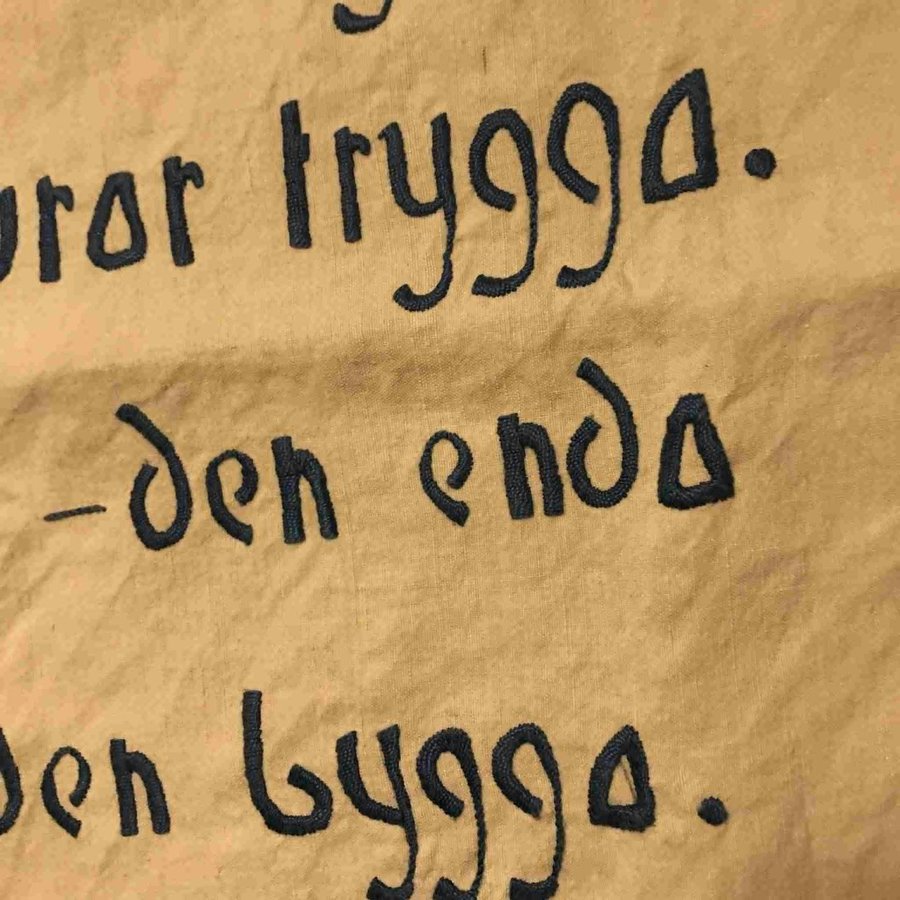 urar trygga.
–den enda
den bygga.